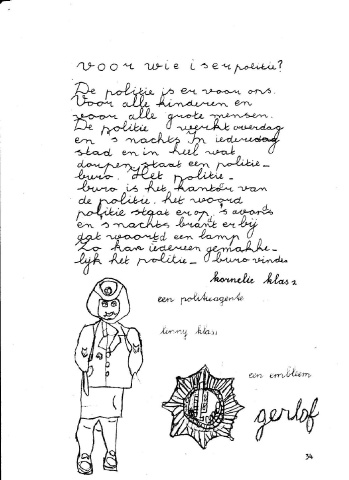 voor wie is er politie?
De politie is er voor ons.
Voor alle kinderen en
voor alle grote mensen.
De politie werkt overdag
en s nachts In iedere
stad en in heel wat
dorpen staat een politie_
buro. Het politie_
buro is het kantor van
de politie. het woord
politie staat er op, s avonts
en s nachts brant er bij
dat woord een lamp
Zo kan iedereen gemakke_
lijk het politie_ buro vinden
kornelie klas 2
een politieagente
klas
een embleem
gerlof
34